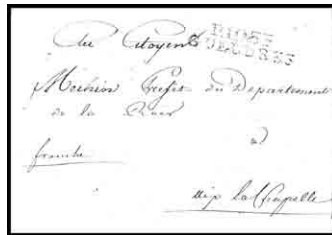 Au Citoyen
Mechin Préfet du Département
de la Roer
à
franche
aix la Chapelle